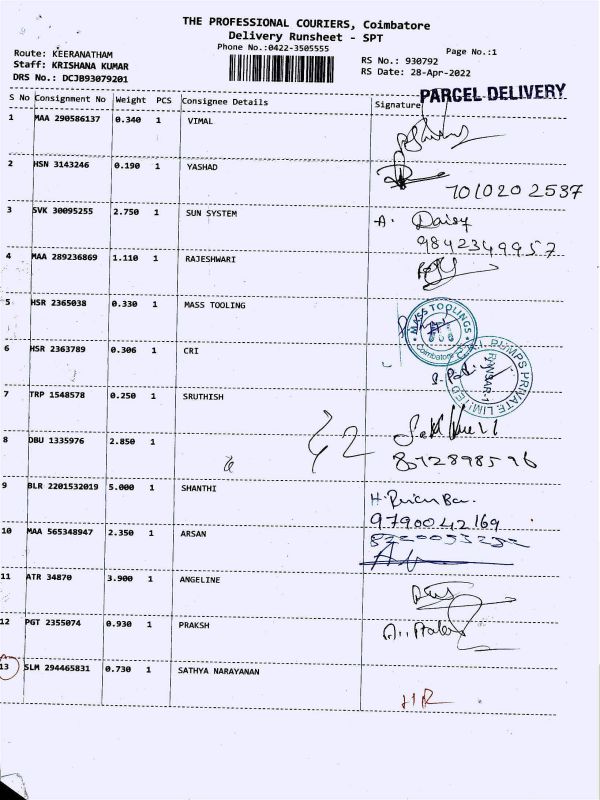 THE PROFESSIONAL COURIERS, Coimbatore
Delivery Runsheet - SPT
Phone No.:0422-3505555
Page No.:1
Route: KEERANATHAM
RS No.: 930792
Staff: KRISHANA KUMAR
RS Date: 28-Apr-2022
DRS No.: DCJB93079201
PARCEL DELIVERY
S No Consignment No Weight PCS Consignee Details Signature
1 MAA 290586137 0.340 1 VIMAL
2 HSN 3143246 0.190 1 YASHAD
7010202537
3 SVK 30095255 2.750 1 SUN SYSTEM A. Daisy
9842349957
4 MAA 289236869 1.110 1 RAJESHWARI
5 HSR 2365038 0.330 1 MASS TOOLING
MASS TOOLINGS
Coimbatore
6 HSR 2363789 0.306 1 CRI
C.R.I. PUMPS PRIVATE LIMITED
7 TRP 1548578 0.250 1 SRUTHISH
8 DBU 1335976 2.850 1
9 BLR 2201532019 5.000 1 SHANTHI
9790042169
10 MAA 565348947 2.350 1 ARSAN
11 ATR 34870 3.900 1 ANGELINE
12 PGT 2355074 0.930 1 PRAKSH
13 SLM 294465831 0.730 1 SATHYA NARAYANAN